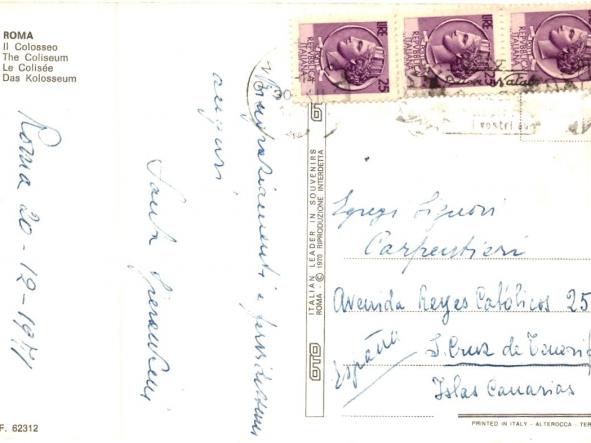 ROMA
Il Colosseo
The Coliseum
Le Colisée
Das Kolosseum
Roma 20-12-1971
Ringraziamenti e fervidissimi
auguri
F. 62312
ITALIAN LEADER IN SOUVENIRS
ROMA - © 1970 RIPRODUZIONE INTERDETTA
OTO
OTO
LIRE 25
REPUBBLICA
ITALIANA
LIRE 25
REPUBBLICA
ITALIANA
REPUBBLICA
ITALIANA
Natale
i vostri
Egregi Signori
Carpentieri
Avenida Reyes Católicos 25
S. Cruz de Tenerif
Islas Canarias
España
PRINTED IN ITALY - ALTEROCCA - TER